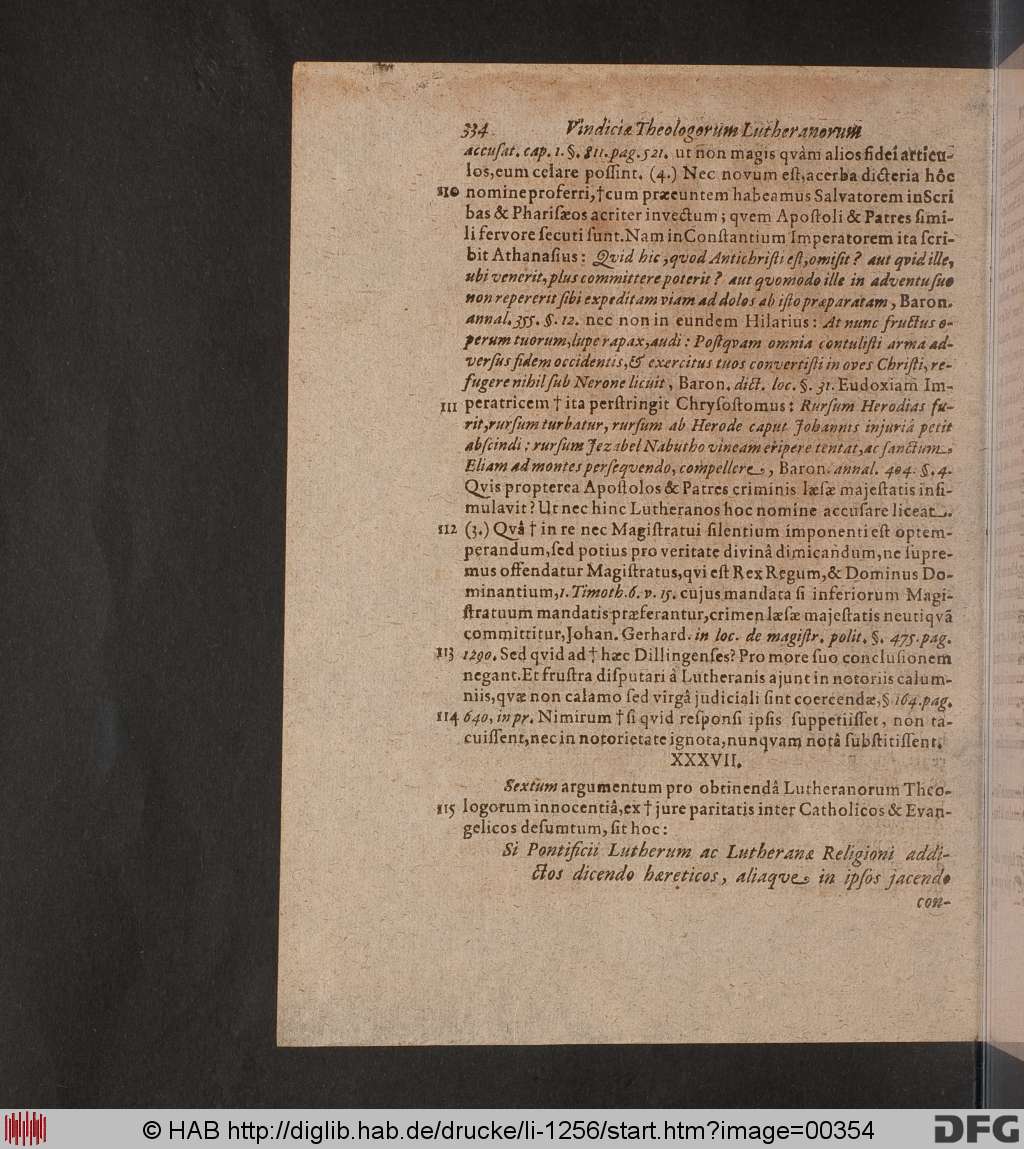 334 Vindiciæ Theologorum Lutheranorum
accuſat. cap. 1. §. 811. pag. 521. ut non magis qvàm alios fidei articu-
los, eum celare poſſint. (4.) Nec novum eſt, acerba dicteria hôc
110 nomine proferri, † cum præeuntem habeamus Salvatorem in Scri
bas & Phariſæos acriter invectum; qvem Apoſtoli & Patres ſimi-
li fervore ſecuti ſunt. Nam in Conſtantium Imperatorem ita ſcri-
bit Athanaſius: Qvid hic, qvod Antichriſti eſt, omiſit? aut qvid ille,
ubi venerit, plus committere poterit? aut qvomodo ille in adventu ſuo
non repererit ſibi expeditam viam ad dolos ab iſto præparatam, Baron.
annal. 355. §. 12. nec non in eundem Hilarius: At nunc fructus o-
perum tuorum, lupe rapax, audi: Poſtqvam omnia contuliſti arma ad-
verſus fidem occidentis, & exercitus tuos convertiſti in oves Chriſti, re-
fugere nihil ſub Nerone licuit, Baron. dict. loc. §. 31. Eudoxiam Im-
111 peratricem † ita perſtringit Chryſoſtomus: Rurſum Herodias fu-
rit, rurſum turbatur, rurſum ab Herode caput Johannis injuriâ petit
abſcindi: rurſum Jezabel Nabutho vineam eripere tentat, ac ſanctum
Eliam ad montes perſequendo, compellere, Baron. annal. 404. §. 4.
Qvis propterea Apoſtolos & Patres criminis læſæ majeſtatis inſi-
mulavit? Ut nec hinc Lutheranos hoc nomine accuſare liceat.
112 (3.) Qvâ † in re nec Magiſtratui ſilentium imponenti eſt optem-
perandum, ſed potius pro veritate divinâ dimicandum, ne ſupre-
mus offendatur Magiſtratus, qvi eſt Rex Regum, & Dominus Do-
minantium, 1. Timoth. 6. v. 15. cujus mandata ſi inferiorum Magi-
ſtratuum mandatis præferantur, crimen læſæ majeſtatis neutiqvã
committitur, Johan. Gerhard. in loc. de magiſtr. polit. §. 475. pag.
113 1290. Sed qvid ad † hæc Dillingenſes? Pro more ſuo concluſionem
negant. Et fruſtra diſputari à Lutheranis ajunt in notoriis calum-
niis, qvæ non calamo ſed virgâ judiciali ſint coercendæ, § 164. pag.
114 640, in pr. Nimirum † ſi qvid reſponſi ipſis ſuppetiiſſet, non ta-
cuiſſent, nec in notorietate ignota, nunqvam notâ ſubſtitiſſent.
XXXVII.
Sextum argumentum pro obtinendâ Lutheranorum Theo-
115 logorum innocentiâ, ex † jure paritatis inter Catholicos & Evan-
gelicos deſumtum, ſit hoc:
Si Pontificii Lutherum ac Lutheranæ Religioni addi-
ctos dicendo hæreticos, aliaque in ipſos jacendo
con-
© HAB http://diglib.hab.de/drucke/li-1256/start.htm?image=00354
DFG